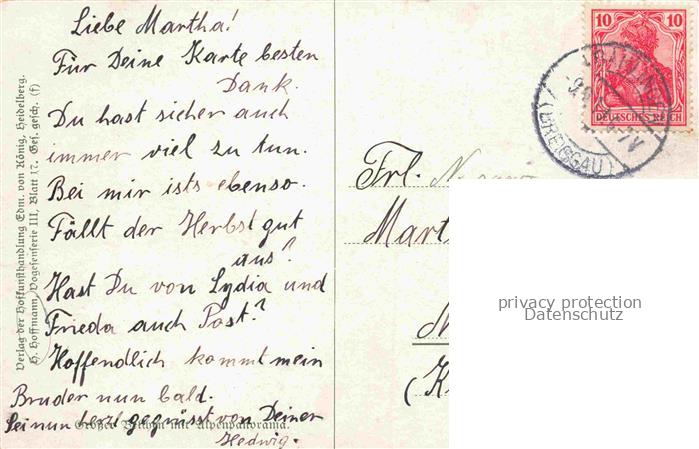 Liebe Martha!
Für Deine Karte besten
Dank.
Du hast sicher auch
immer viel zu tun.
Bei mir ists ebenso.
Fällt der Herbst gut
aus?
Hast Du von Lydia und
Frieda auch Post?
Hoffendlich kommt mein
Bruder nun bald.
Sei nun herzl gegrüsst von Deiner
Hedwig.
Großer Belchen mit Alpenpanorama.
Verlag der Hofkunsthandlung Edm. von König, Heidelberg.
H. Hoffmann, Vogesenserie III, Blatt 17. Ges. gesch. (f)
10 10
DEUTSCHES REICH
(BREISGAU)
Frl.
Mart
privacy protection
Datenschutz